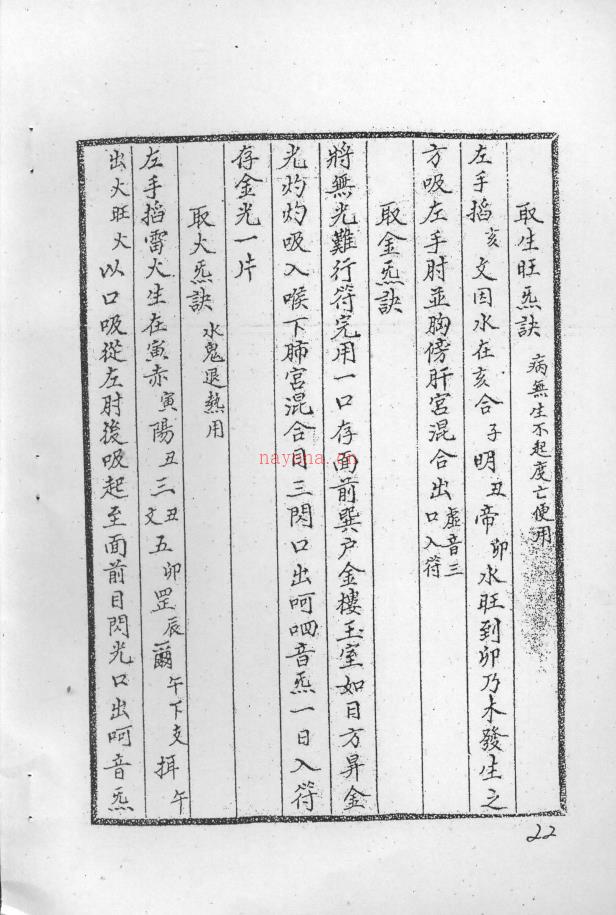 取生旺炁訣 病無生不起度亡使用
左手掐亥文因水在亥合子明丑帝卯水旺到卯乃木發生之
方吸左手肘並胸傍肝宮混合出虛音三口入符
取金炁訣
將無光難行符完用一口存面前巽户金樓玉室如日方昇金
光灼灼吸入喉下肺宮混合目三閃口出呵呬音炁一日入符
存金光一片
取火炁訣 水鬼退熱用
左手掐雷火生在寅赤寅陽丑三丑文五卯罡辰爾午下支挕午
出火旺火以口吸從左肘後吸起至面前目閃光口出呵音炁
22
nayona.cn